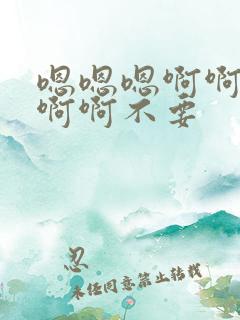 嗯嗯嗯啊啊
啊啊不要
忍
未经同意禁止转载